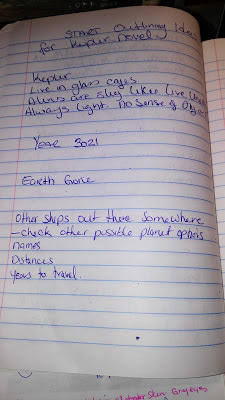 START Outlining Idea
for Kepler Novel
Kepler
Live in glass cages
are like Live
Always light no sense of
Year 3021
Earth Gone
Other ships out there somewhere
-check other possible planet options
names
Distances
years to travel.
Skin Grey eyes